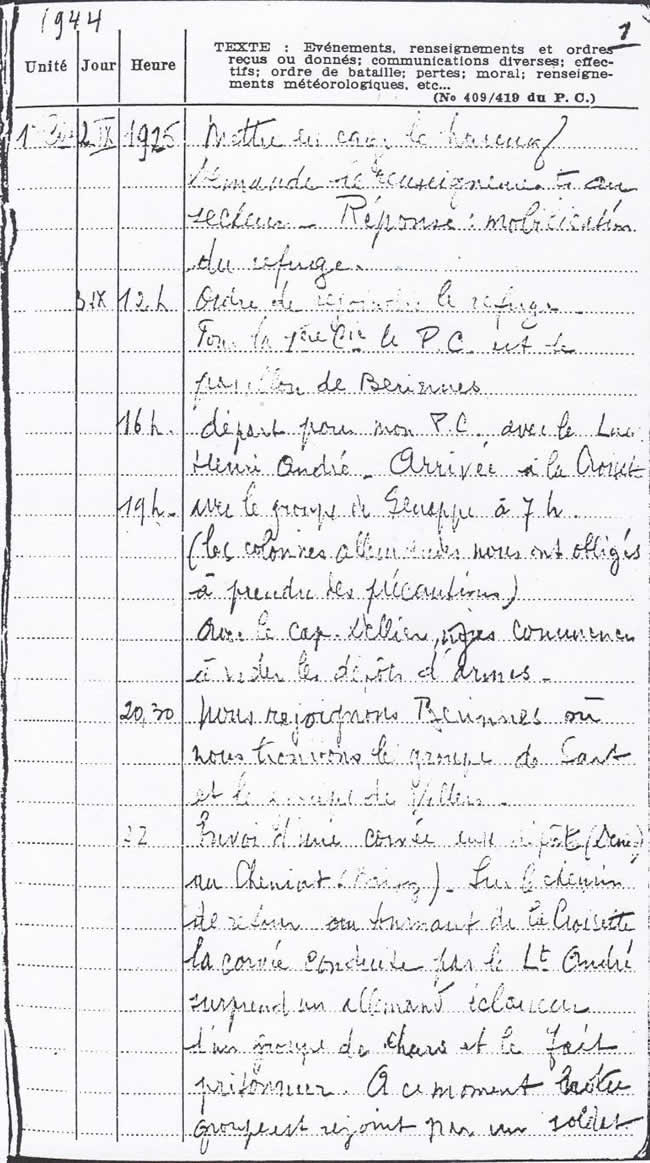 1944
1
Unité Jour Heure
TEXTE : Evénements, renseignements et ordres
reçus ou donnés; communications diverses; effec-
tifs; ordre de bataille; pertes; moral; renseigne-
ments météorologiques, etc...
(No 409/419 du P. C.)
2 IX 1925 Mettre en
Demande de renseignements au
secteur - Réponse : mobilisation
du refuge.
3 IX 12 h Ordre de rejoindre le refuge -
Pour la 1ère Cie le P.C. est le
pavillon de Beriennes
16 h. départ pour mon P.C. avec le
Henri André - Arrivée à la
19 h - avec le groupe de Genappe à 7 h.
(les colonnes allemandes nous ont obligés
à prendre des précautions)
Avec le cap. nous
à vider les dépôts d'armes -
20,30 nous rejoignons où
nous trouvons le groupe de
et le groupe de
22 Envoi d'une corvée aux dépôts
au - Sur le chemin
de retour au tournant de la Croisette
la corvée conduite par le Lt André
surprend un allemand éclaireur
d'un groupe de chars et le fait
prisonnier. A ce moment
groupe est rejoint par un soldat